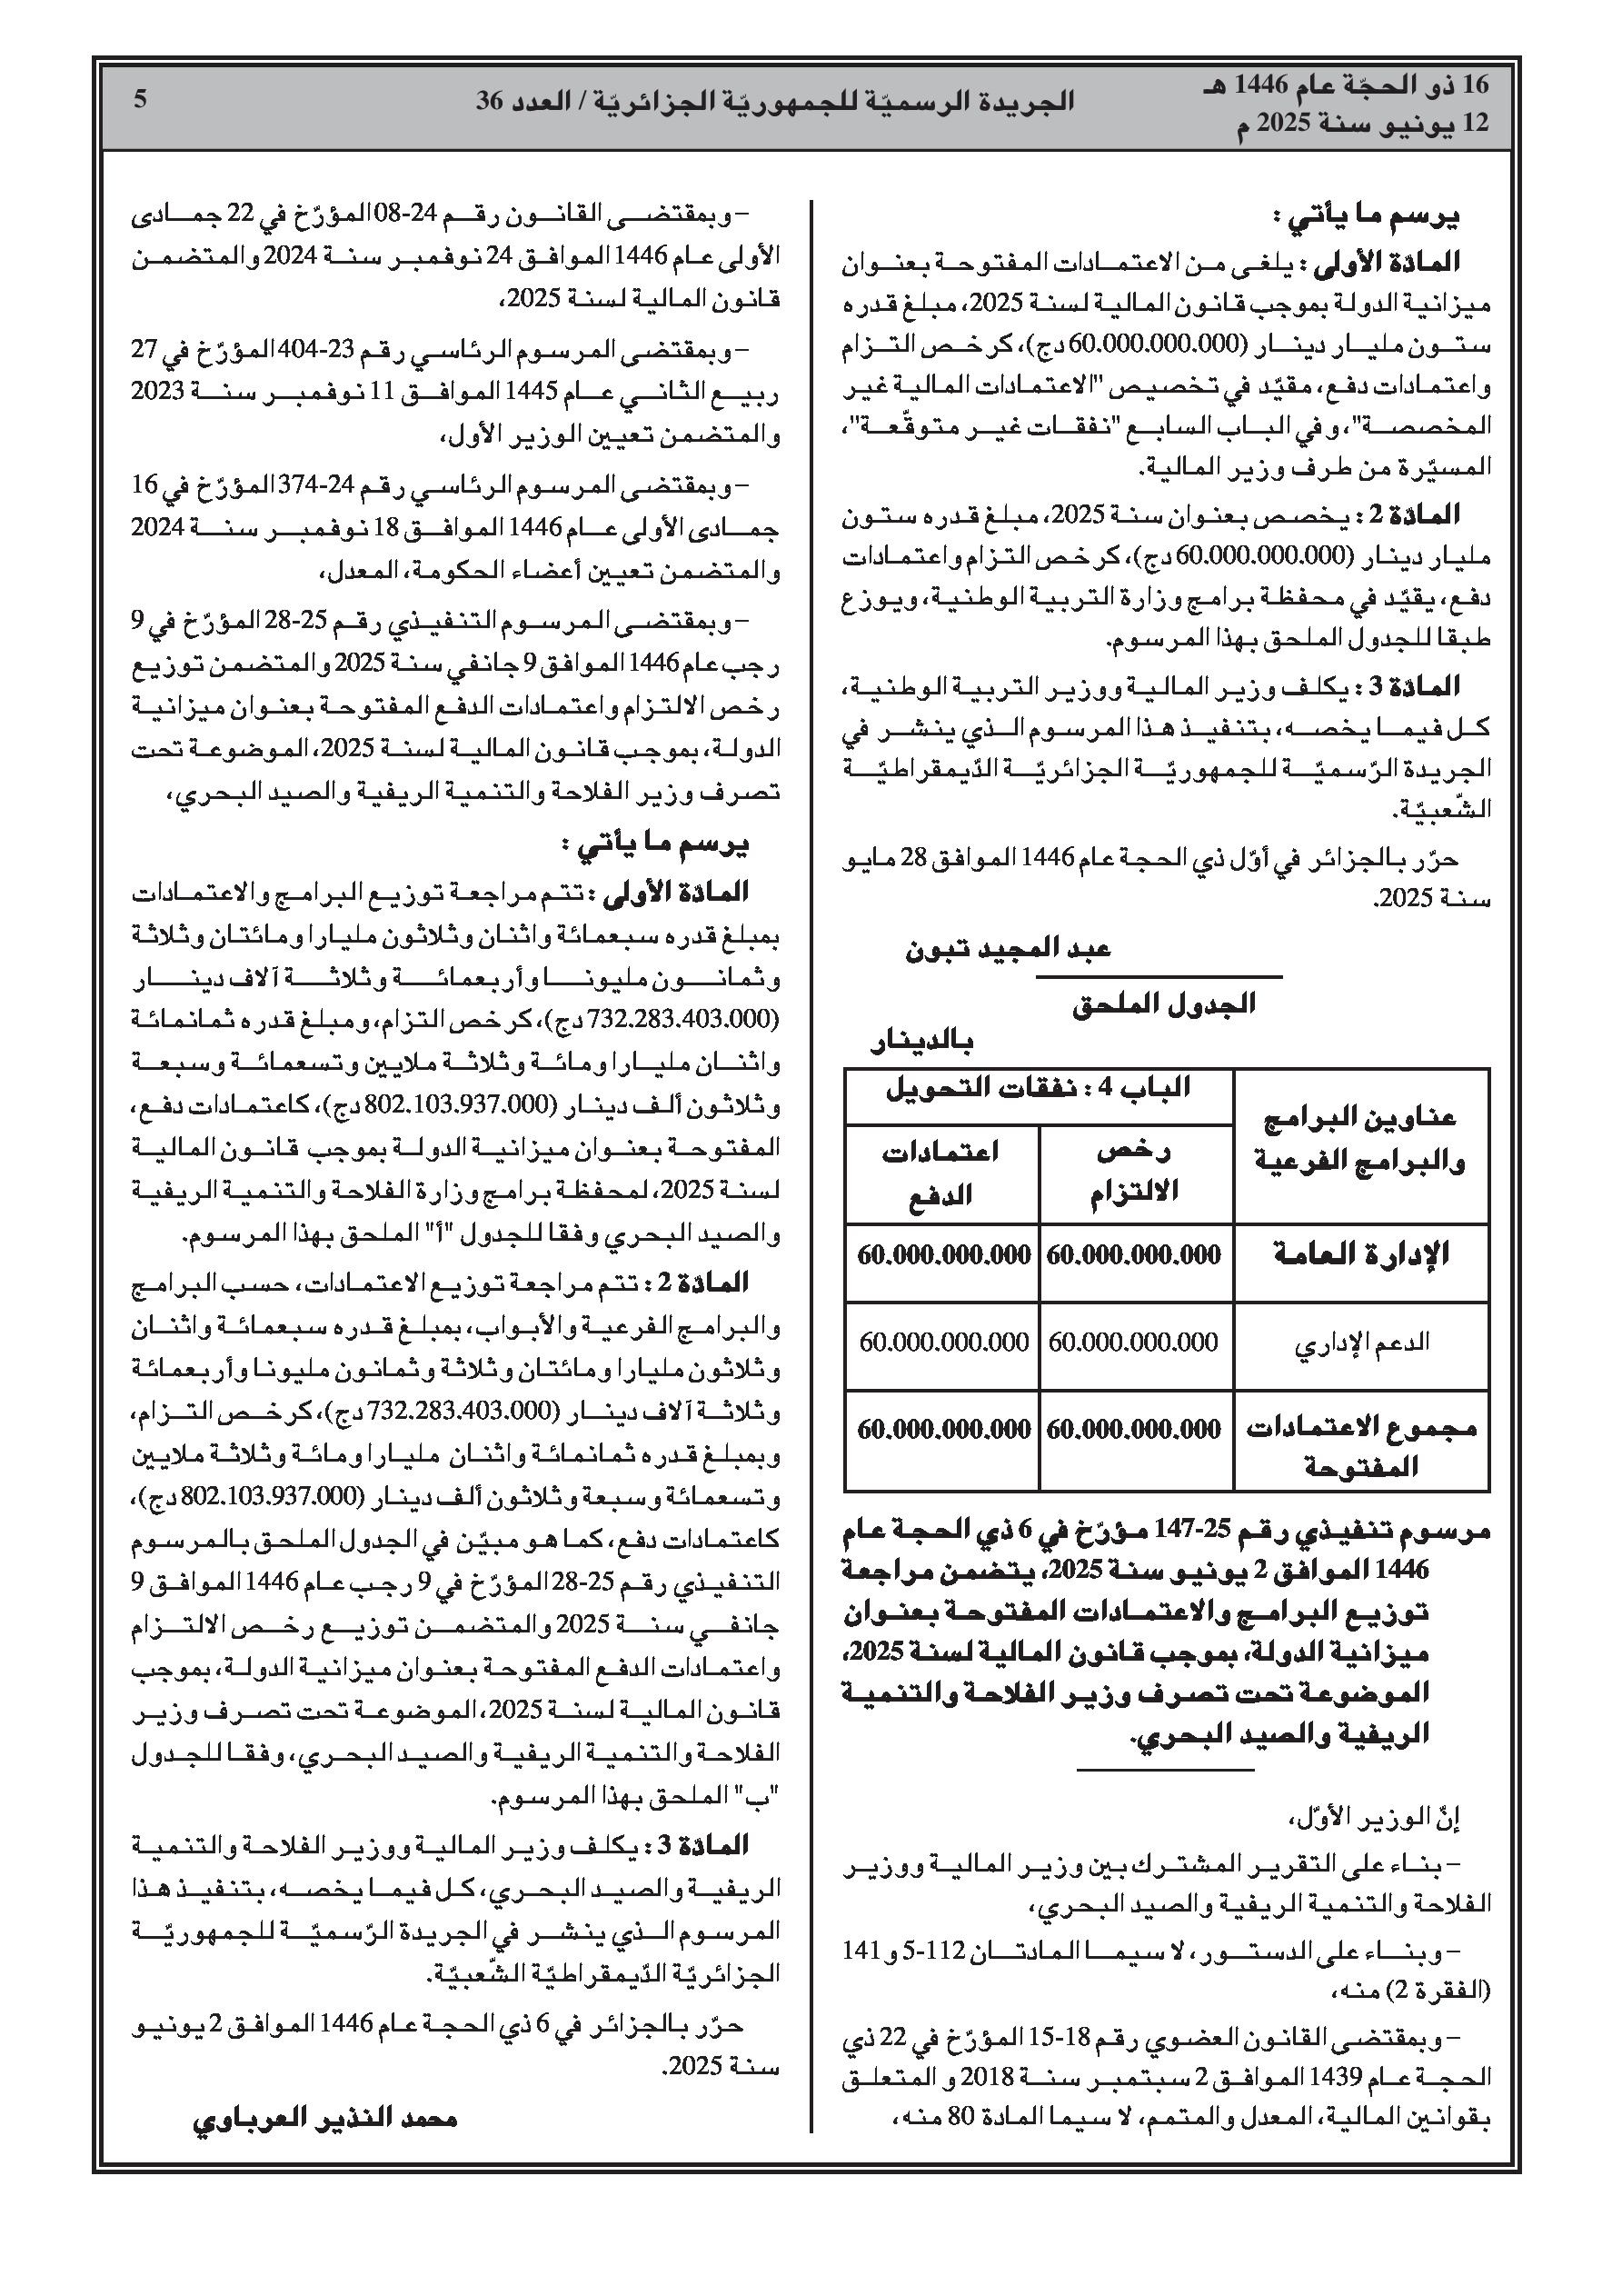 16 ذو الحجّة عام 1446 هـ
12 يونيو سنة 2025 م
الجريدة الرسميّة للجمهوريّة الجزائريّة / العدد 36
5
يرسم ما يأتي :
المادّة الأولى : يلغى من الاعتمادات المفتوحة بعنوان
ميزانية الدولة بموجب قانون المالية لسنة 2025، مبلغ قدره
ستون مليار دينار (60.000.000.000 دج)، كرخص التزام
واعتمادات دفع، مقيّد في تخصيص "الاعتمادات المالية غير
المخصصة"، وفي الباب السابع "نفقات غير متوقّعة"،
المسيّرة من طرف وزير المالية.
المادّة 2 : يخصص بعنوان سنة 2025، مبلغ قدره ستون
مليار دينار (60.000.000.000 دج)، كرخص التزام واعتمادات
دفع، يقيّد في محفظة برامج وزارة التربية الوطنية، ويوزع
طبقا للجدول الملحق بهذا المرسوم.
المادّة 3 : يكلف وزير المالية ووزير التربية الوطنية،
كل فيما يخصه، بتنفيذ هذا المرسوم الذي ينشر في
الجريدة الرّسميّة للجمهوريّة الجزائريّة الدّيمقراطيّة
الشّعبيّة.
حرّر بالجزائر في أوّل ذي الحجة عام 1446 الموافق 28 مايو
سنة 2025.
عبد المجيد تبون
الجدول الملحق
بالدينار
عناوين البرامج
والبرامج الفرعية
الباب 4 : نفقات التحويل
رخص
الالتزام
اعتمادات
الدفع
الإدارة العامة 60.000.000.000 60.000.000.000
الدعم الإداري 60.000.000.000 60.000.000.000
مجموع الاعتمادات 60.000.000.000 60.000.000.000
المفتوحة
مرسوم تنفيذي رقم 25-147 مؤرّخ في 6 ذي الحجة عام
1446 الموافق 2 يونيو سنة 2025، يتضمن مراجعة
توزيع البرامج والاعتمادات المفتوحة بعنوان
ميزانية الدولة، بموجب قانون المالية لسنة 2025،
الموضوعة تحت تصرف وزير الفلاحة والتنمية
الريفية والصيد البحري.
إنّ الوزير الأوّل،
– بناء على التقرير المشترك بين وزير المالية ووزير
الفلاحة والتنمية الريفية والصيد البحري،
– وبناء على الدستور، لا سيما المادتان 112-5 و 141
(الفقرة 2) منه،
– وبمقتضى القانون العضوي رقم 18-15 المؤرّخ في 22 ذي
الحجة عام 1439 الموافق 2 سبتمبر سنة 2018 و المتعلق
بقوانين المالية، المعدل والمتمم، لا سيما المادة 80 منه،
– وبمقتضى القانون رقم 24-08 المؤرّخ في 22 جمادى
الأولى عام 1446 الموافق 24 نوفمبر سنة 2024 والمتضمن
قانون المالية لسنة 2025،
– وبمقتضى المرسوم الرئاسي رقم 23-404 المؤرّخ في 27
ربيع الثاني عام 1445 الموافق 11 نوفمبر سنة 2023
والمتضمن تعيين الوزير الأول،
– وبمقتضى المرسوم الرئاسي رقم 24-374 المؤرّخ في 16
جمادى الأولى عام 1446 الموافق 18 نوفمبر سنة 2024
والمتضمن تعيين أعضاء الحكومة، المعدل،
– وبمقتضى المرسوم التنفيذي رقم 25-28 المؤرّخ في 9
رجب عام 1446 الموافق 9 جانفي سنة 2025 والمتضمن توزيع
رخص الالتزام واعتمادات الدفع المفتوحة بعنوان ميزانية
الدولة، بموجب قانون المالية لسنة 2025، الموضوعة تحت
تصرف وزير الفلاحة والتنمية الريفية والصيد البحري،
يرسم ما يأتي :
المادّة الأولى : تتم مراجعة توزيع البرامج والاعتمادات
بمبلغ قدره سبعمائة واثنان وثلاثون مليارا ومائتان وثلاثة
وثمانون مليونا وأربعمائة وثلاثة آلاف دينار
(732.283.403.000 دج)، كرخص التزام، ومبلغ قدره ثمانمائة
واثنان مليارا ومائة وثلاثة ملايين وتسعمائة وسبعة
وثلاثون ألف دينار (802.103.937.000 دج)، كاعتمادات دفع،
المفتوحة بعنوان ميزانية الدولة بموجب قانون المالية
لسنة 2025، لمحفظة برامج وزارة الفلاحة والتنمية الريفية
والصيد البحري وفقا للجدول "أ" الملحق بهذا المرسوم.
المادّة 2 : تتم مراجعة توزيع الاعتمادات، حسب البرامج
والبرامج الفرعية والأبواب، بمبلغ قدره سبعمائة واثنان
وثلاثون مليارا ومائتان وثلاثة وثمانون مليونا وأربعمائة
وثلاثة آلاف دينار (732.283.403.000 دج)، كرخص التزام،
وبمبلغ قدره ثمانمائة واثنان مليارا ومائة وثلاثة ملايين
وتسعمائة وسبعة وثلاثون ألف دينار (802.103.937.000 دج)،
كاعتمادات دفع، كما هو مبيّن في الجدول الملحق بالمرسوم
التنفيذي رقم 25-28 المؤرّخ في 9 رجب عام 1446 الموافق 9
جانفي سنة 2025 والمتضمن توزيع رخص الالتزام
واعتمادات الدفع المفتوحة بعنوان ميزانية الدولة، بموجب
قانون المالية لسنة 2025، الموضوعة تحت تصرف وزير
الفلاحة والتنمية الريفية والصيد البحري، وفقا للجدول
"ب" الملحق بهذا المرسوم.
المادّة 3 : يكلف وزير المالية ووزير الفلاحة والتنمية
الريفية والصيد البحري، كل فيما يخصه، بتنفيذ هذا
المرسوم الذي ينشر في الجريدة الرّسميّة للجمهوريّة
الجزائريّة الدّيمقراطيّة الشّعبيّة.
حرّر بالجزائر في 6 ذي الحجة عام 1446 الموافق 2 يونيو
سنة 2025.
محمد النذير العرباوي